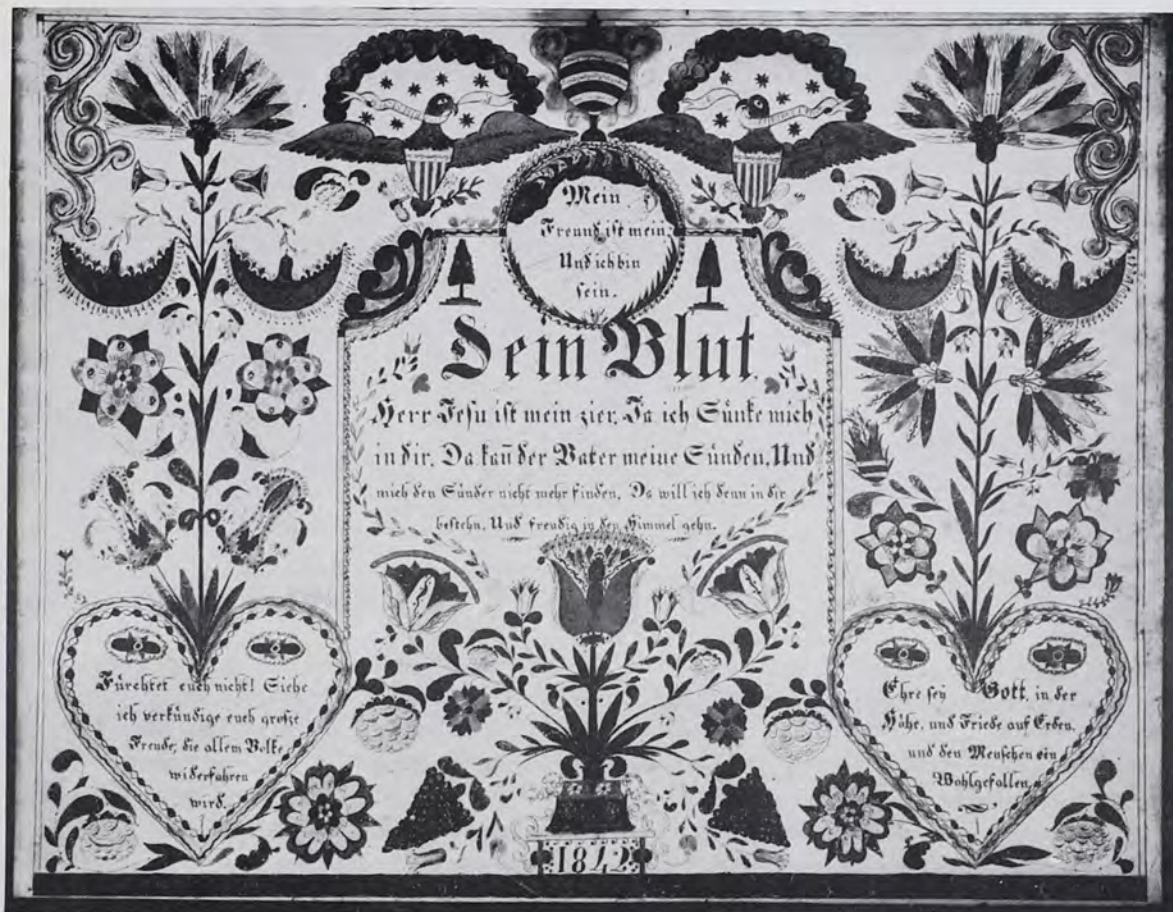 Mein
Freund ist mein,
Und ich bin
sein.
Dein Blut
Herr Jesu ist mein zier, Ja ich Sünke mich
in dir. Da kan̄ der Vater meine Sünden, Und
mich den Sünder nicht mehr finden. Da will ich denn in dir
bestehn, Und freudig in den Himmel gehn.
Fürchtet euch nicht! Siehe
ich verkündige euch große
Freude; die allem Volke
widerfahren
wird.
Ehre sey Gott, in der
Höhe, und Friede auf Erden,
und den Menschen ein
Wohlgefallen.
1842